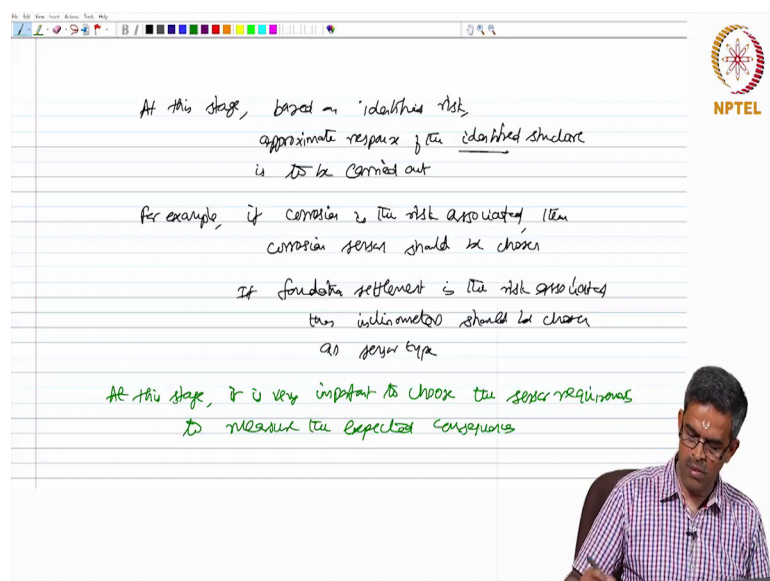 File Edit View Insert Actions Tools Help
B I
NPTEL
At this stage, based on identified risk,
approximate response of the identified structure
is to be carried out
For example, if corrosion is the risk associated, then
corrosion sensor should be chosen
If foundation settlement is the risk associated
then inclinometers should be chosen
as sensor type
At this stage, it is very important to choose the sensor requirements
to measure the expected consequences